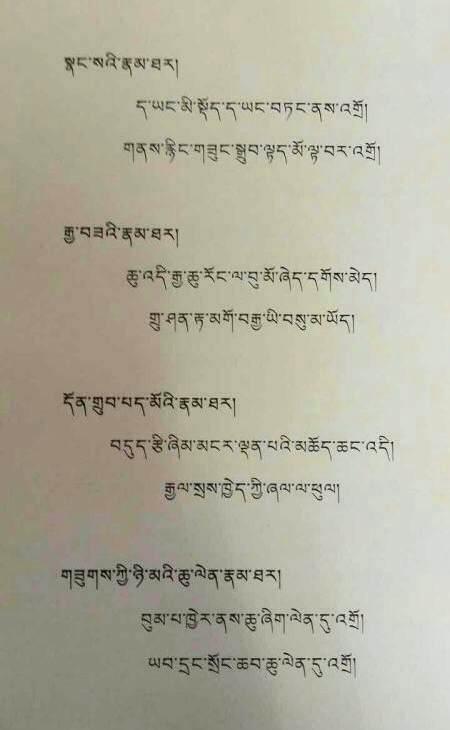 སྣང་སའི་རྣམ་ཐར།
ད་ཡང་མི་སྡོད་ད་ཡང་བཏང་ནས་འགྲོ།
གནས་རྙིང་གཟུང་སྒྲུབ་ལྟད་མོ་ལྟ་བར་འགྲོ།
རྒྱ་བཟའི་རྣམ་ཐར།
ཆུ་འདི་རྒྱ་ཆུ་རོང་ལ་བུ་མོ་ཞེད་དགོས་མེད།
གྲུ་ཤན་རྟ་མགོ་བརྒྱ་ཡི་བསུ་མ་ཡོད།
དོན་གྲུབ་པད་མོའི་རྣམ་ཐར།
བདུད་རྩི་ཞིམ་མངར་ལྡན་པའི་མཆོད་ཆང་འདི།
རྒྱལ་སྲས་ཁྱེད་ཀྱི་ཞལ་ལ་ཕུལ།
གཟུགས་ཀྱི་ཉི་མའི་ཆུ་ལེན་རྣམ་ཐར།
བུམ་པ་ཁྱེར་ནས་ཆུ་ཞིག་ལེན་དུ་འགྲོ།
ཡབ་དྲང་སྲོང་ཆབ་ཆུ་ལེན་དུ་འགྲོ།